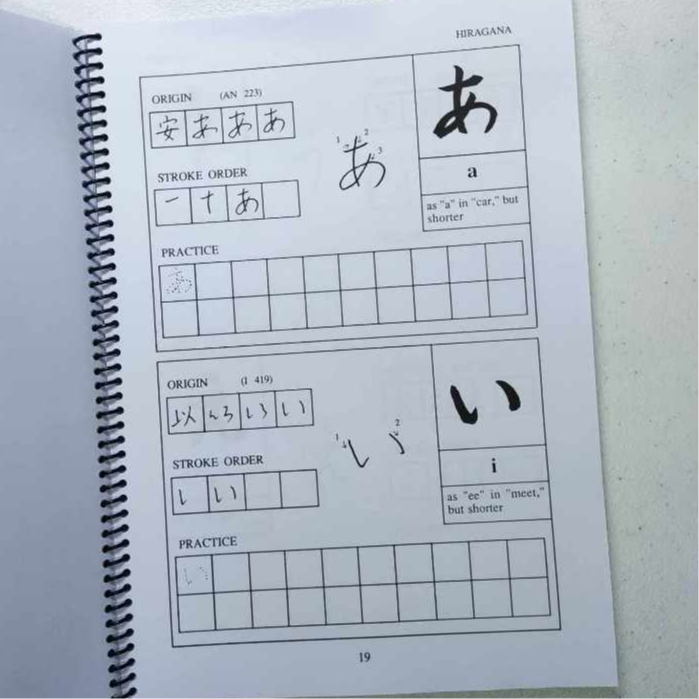 HIRAGANA
ORIGIN (AN 223)
安 あ あ あ
STROKE ORDER
一 ナ あ
1 2 3
あ
あ
a
as "a" in "car," but
shorter
PRACTICE
あ
ORIGIN (I 419)
以 い い
STROKE ORDER
し い
1 2
い
い
i
as "ee" in "meet,"
but shorter
PRACTICE
い
19